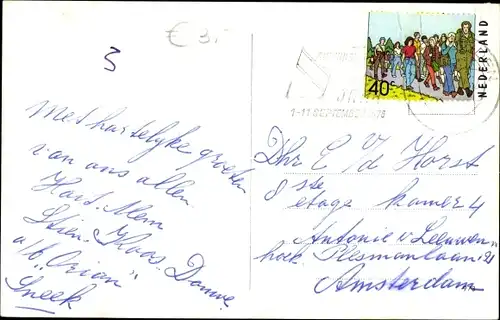 € 3,-
3
NEDERLAND
40c
1-11 SEPTEMBER 1976
Met hartelyke groeten
van ons allen
Hans. Mein
Stien. Klaas. Douwe
a/b. "Orian"
Sneek
Dhr E v/d Horst
8 ste
etage kamer 4
Antonie v Leeuwen"
hoek Plesmanlaan 121
Amsterdam